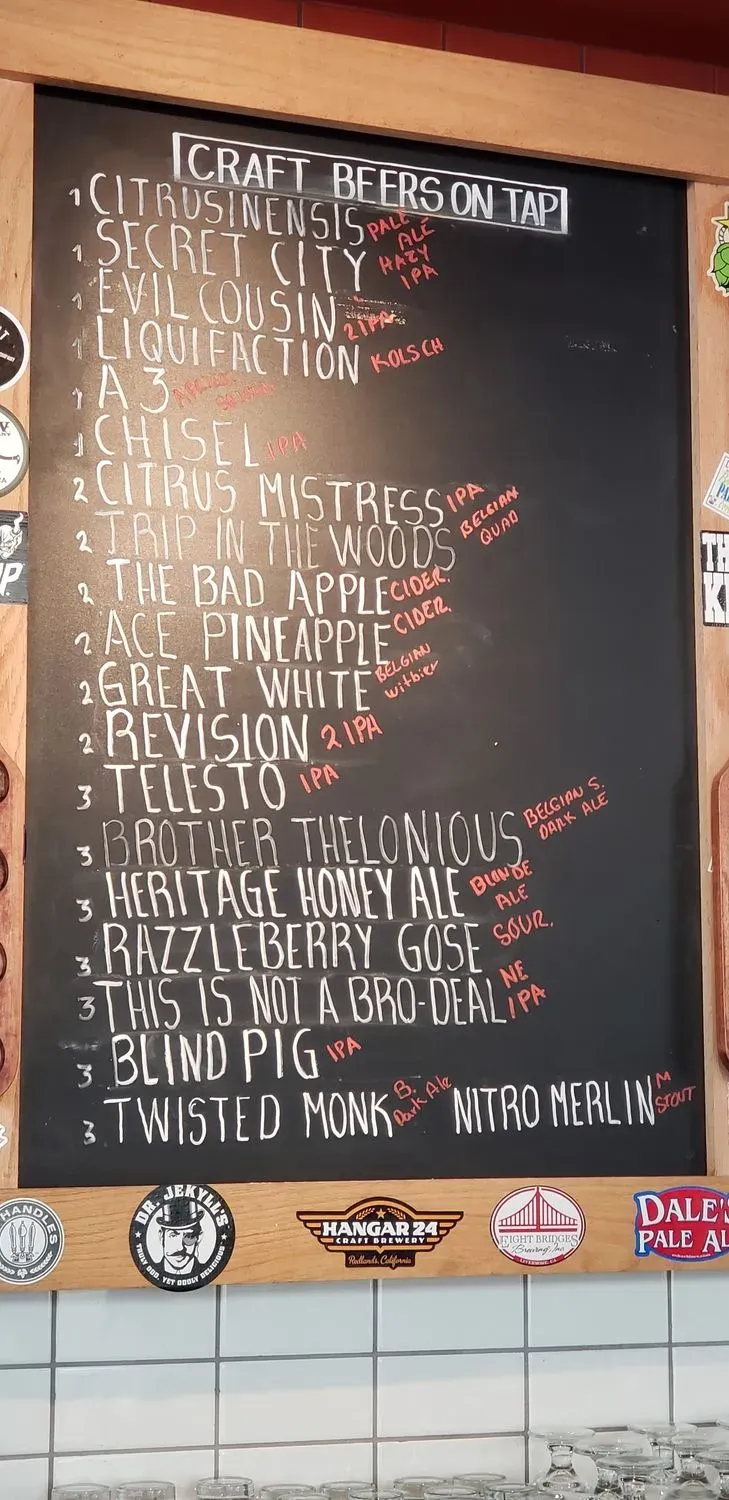 CRAFT BEERS ON TAP
1 CITRUSINENSIS PALE ALE
1 SECRET CITY HAZY IPA
1 EVIL COUSIN 2IPA
1 LIQUIFACTION KOLSCH
1 A 3
1 CHISEL IPA
2 CITRUS MISTRESS IPA
2 TRIP IN THE WOODS BELGIAN QUAD
2 THE BAD APPLE CIDER.
2 ACE PINEAPPLE CIDER.
2 GREAT WHITE BELGIAN witbier
2 REVISION 2IPA
3 TELESTO IPA
3 BROTHER THELONIOUS BELGIAN S. DARK ALE
3 HERITAGE HONEY ALE BLONDE ALE
3 RAZZLEBERRY GOSE SOUR.
3 THIS IS NOT A BRO-DEAL NE IPA
3 BLIND PIG IPA
3 TWISTED MONK B. Dark Ale NITRO MERLIN M STOUT
HANDLES
DR. JEKYLL'S
TRULY GOOD, YET ODDLY DELICIOUS
HANGAR 24
CRAFT BREWERY
Redlands, California
EIGHT BRIDGES
Brewing, Inc
LIVERMORE, CA
DALE'S
PALE AL